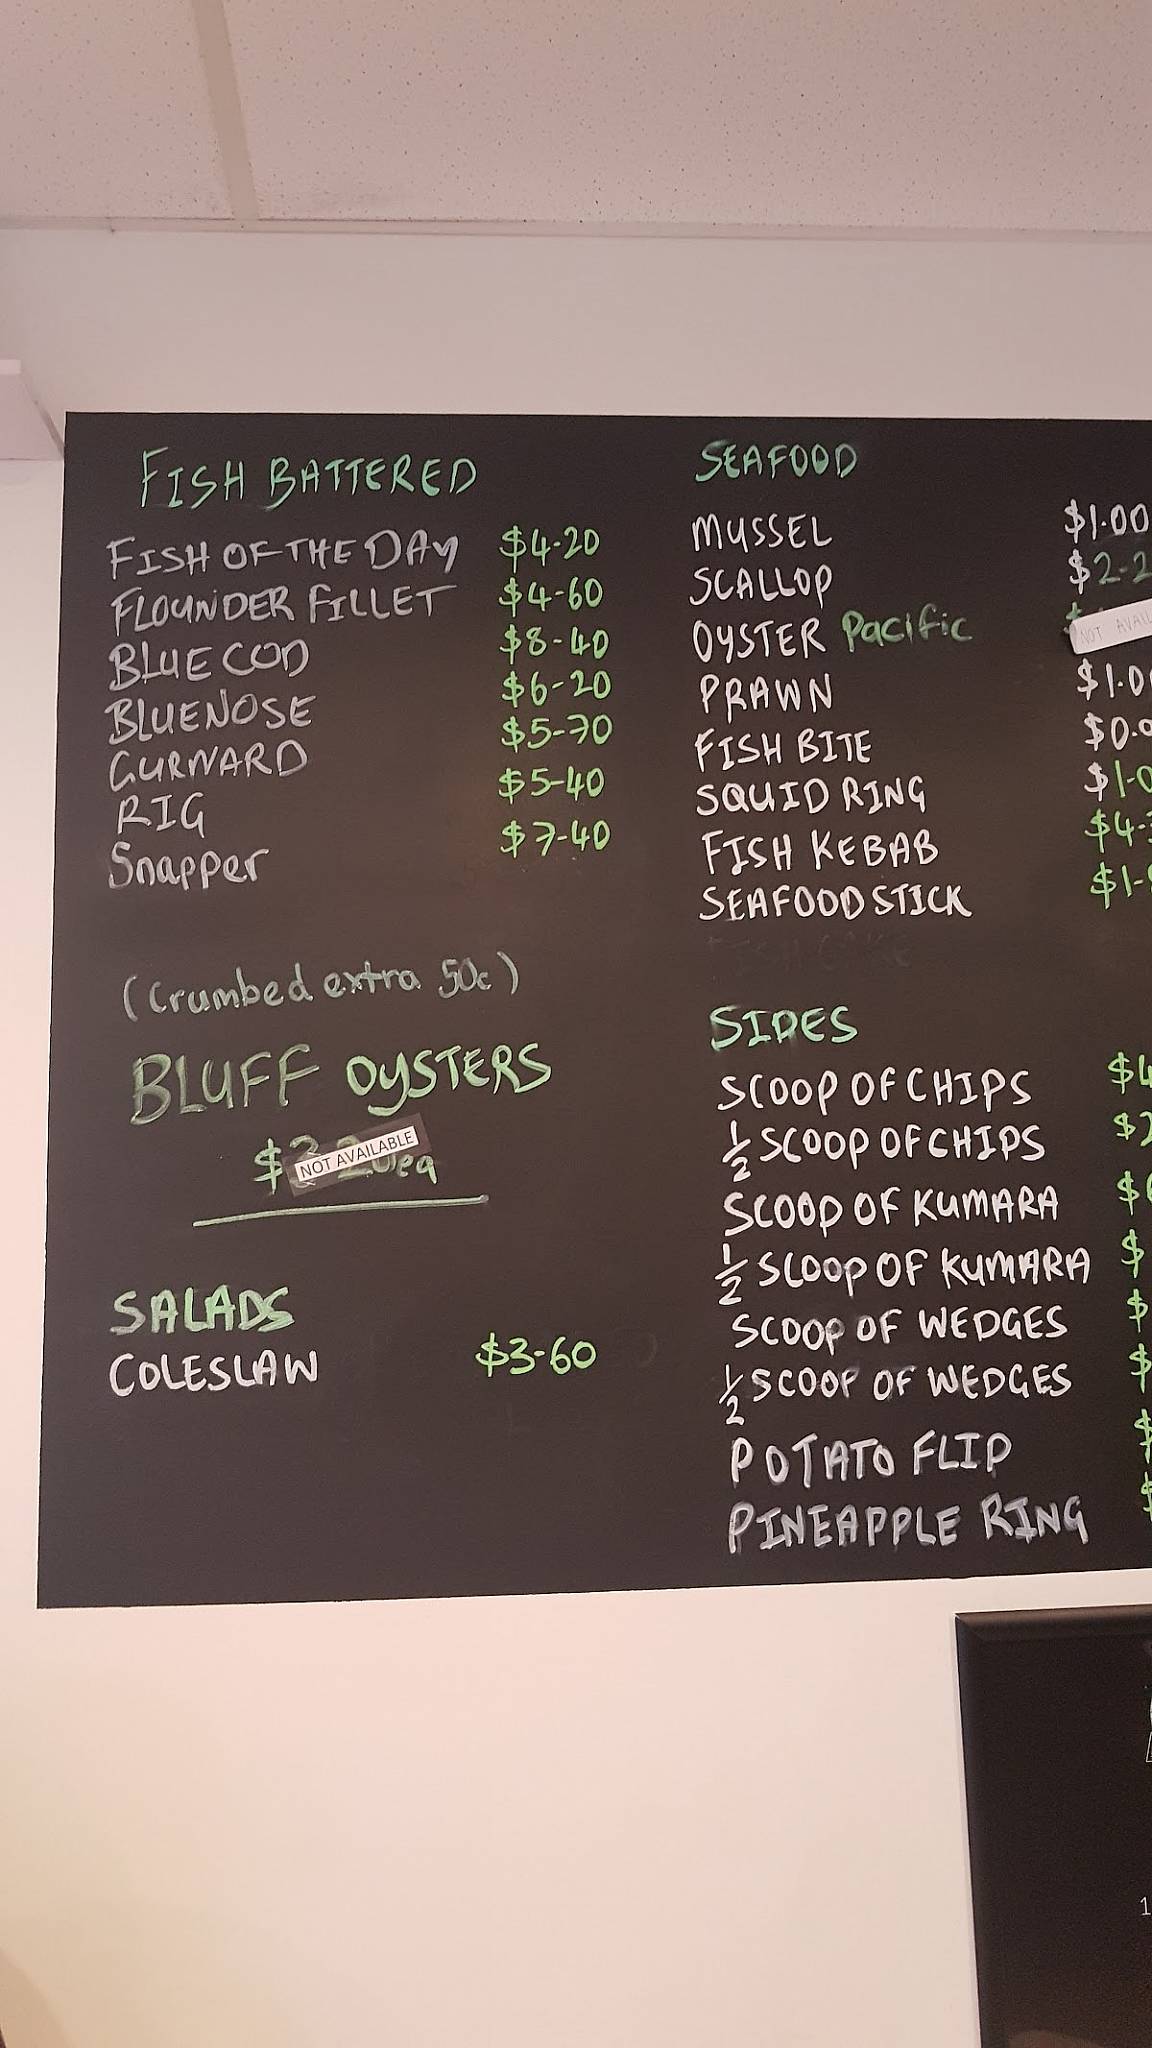 FISH BATTERED
FISH OF THE DAY $4-20
FLOUNDER FILLET $4-60
BLUE COD $8-40
BLUENOSE $6-20
GURNARD $5-70
RIG $5-40
Snapper $7-40
(Crumbed extra 50c)
BLUFF OYSTERS
NOT AVAILABLE
ea
SALADS
COLESLAW $3-60
SEAFOOD
MUSSEL $1.00
SCALLOP $2-2
OYSTER Pacific NOT AVAIL
PRAWN $1.0
FISH BITE $0.
SQUID RING $1-0
FISH KEBAB $4-
SEAFOOD STICK $1-
FISH CAKE
SIDES
SCOOP OF CHIPS $4
1/2 SCOOP OF CHIPS $2
SCOOP OF KUMARA $
1/2 SCOOP OF KUMARA $
SCOOP OF WEDGES $
1/2 SCOOP OF WEDGES $
POTATO FLIP $
PINEAPPLE RING $
1